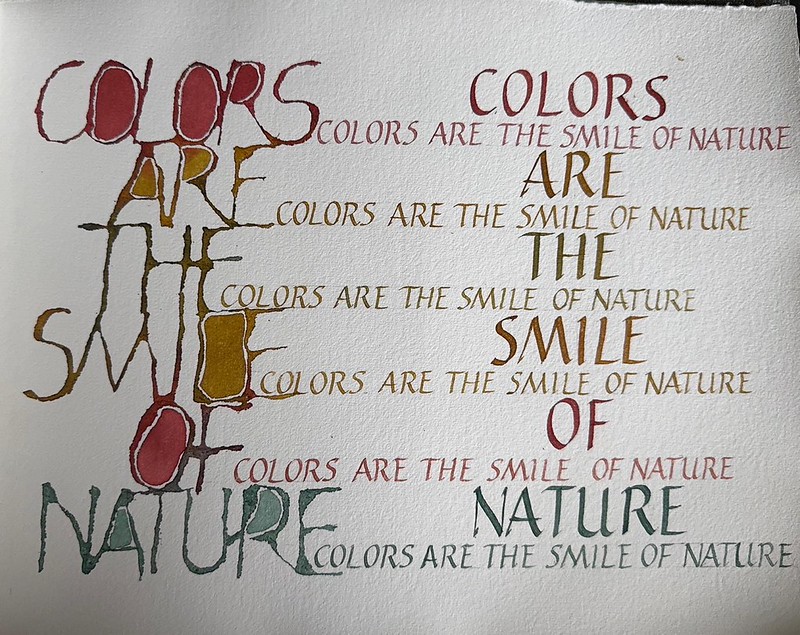 COLORS COLORS
COLORS ARE THE SMILE OF NATURE
ARE ARE
COLORS ARE THE SMILE OF NATURE
THE THE
COLORS ARE THE SMILE OF NATURE
SMILE SMILE
COLORS ARE THE SMILE OF NATURE
OF OF
COLORS ARE THE SMILE OF NATURE
NATURE NATURE
COLORS ARE THE SMILE OF NATURE